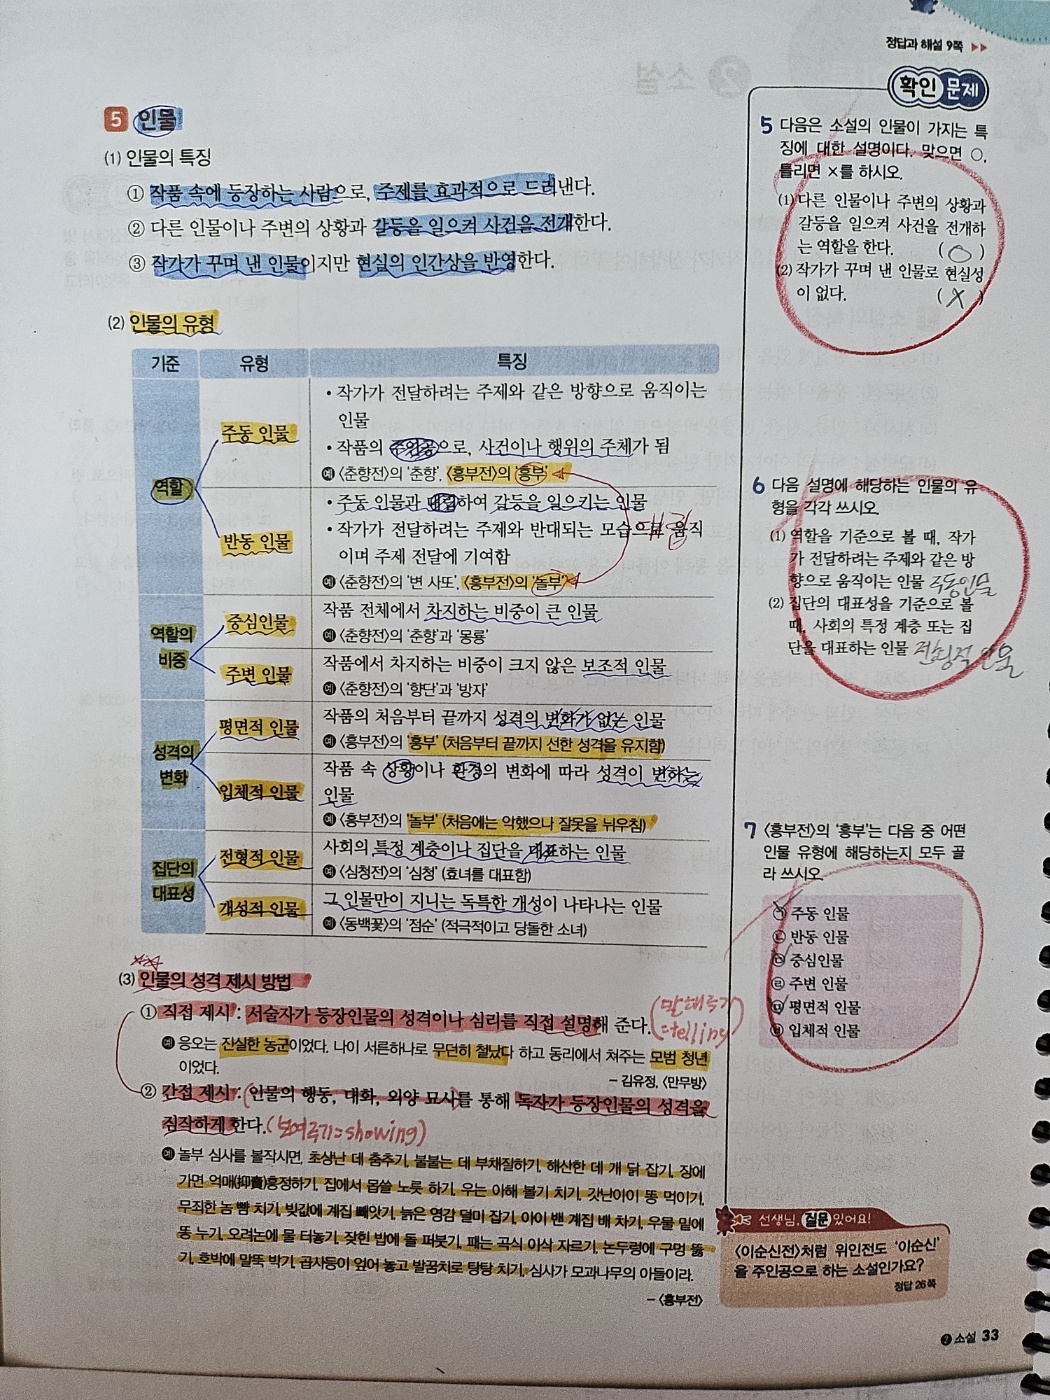 정답과 해설 9쪽 ▶▶
5 인물
(1) 인물의 특징
① 작품 속에 등장하는 사람으로, 주제를 효과적으로 드러낸다.
② 다른 인물이나 주변의 상황과 갈등을 일으켜 사건을 전개한다.
③ 작가가 꾸며 낸 인물이지만 현실의 인간상을 반영한다.
(2) 인물의 유형
기준 유형 특징
역할
주동 인물
• 작가가 전달하려는 주제와 같은 방향으로 움직이는
인물
• 작품의 주인공으로, 사건이나 행위의 주체가 됨
예 〈춘향전〉의 '춘향', 〈흥부전〉의 '흥부'
반동 인물
• 주동 인물과 대립하여 갈등을 일으키는 인물
• 작가가 전달하려는 주제와 반대되는 모습으로 움직
이며 주제 전달에 기여함
예 〈춘향전〉의 '변 사또', 〈흥부전〉의 '놀부'
역할의
비중
중심인물
작품 전체에서 차지하는 비중이 큰 인물
예 〈춘향전〉의 '춘향'과 '몽룡'
주변 인물
작품에서 차지하는 비중이 크지 않은 보조적 인물
예 〈춘향전〉의 '향단'과 '방자'
성격의
변화
평면적 인물
작품의 처음부터 끝까지 성격의 변화가 없는 인물
예 〈흥부전〉의 '흥부' (처음부터 끝까지 선한 성격을 유지함)
입체적 인물
작품 속 상황이나 환경의 변화에 따라 성격이 변하는
인물
예 〈흥부전〉의 '놀부' (처음에는 악했으나 잘못을 뉘우침)
집단의
대표성
전형적 인물
사회의 특정 계층이나 집단을 대표하는 인물
예 〈심청전〉의 '심청' (효녀를 대표함)
개성적 인물
그 인물만이 지니는 독특한 개성이 나타나는 인물
예 〈동백꽃〉의 '점순' (적극적이고 당돌한 소녀)
(3) 인물의 성격 제시 방법
① 직접 제시 : 서술자가 등장인물의 성격이나 심리를 직접 설명해 준다.
(말해주기
=telling)
예 응오는 진실한 농군이었다. 나이 서른하나로 무던히 철났다 하고 동리에서 쳐주는 모범 청년
이었다.
– 김유정, 〈만무방〉
② 간접 제시 : 인물의 행동, 대화, 외양 묘사를 통해 독자가 등장인물의 성격을
짐작하게 한다. (보여주기=showing)
예 놀부 심사를 볼작시면, 초상난 데 춤추기, 불붙는 데 부채질하기, 해산한 데 개 닭 잡기, 장에
가면 억매(抑賣)흥정하기, 집에서 몹쓸 노릇 하기, 우는 아해 볼기 치기, 갓난아이 똥 먹이기,
무죄한 놈 뺨 치기, 빚값에 계집 빼앗기, 늙은 영감 덜미 잡기, 아이 밴 계집 배 차기, 우물 밑에
똥 누기, 오려논에 물 터놓기, 잦힌 밥에 돌 퍼붓기, 패는 곡식 이삭 자르기, 논두렁에 구멍 뚫
기, 호박에 말뚝 박기, 곱사등이 엎어 놓고 발꿈치로 탕탕 치기, 심사가 모과나무의 아들이라.
– 〈흥부전〉
확인 문제
5 다음은 소설의 인물이 가지는 특
징에 대한 설명이다. 맞으면 ○,
틀리면 ×를 하시오.
(1) 다른 인물이나 주변의 상황과
갈등을 일으켜 사건을 전개하
는 역할을 한다. ( ○ )
(2) 작가가 꾸며 낸 인물로 현실성
이 없다. ( X )
6 다음 설명에 해당하는 인물의 유
형을 각각 쓰시오.
(1) 역할을 기준으로 볼 때, 작가
가 전달하려는 주제와 같은 방
향으로 움직이는 인물 주동인물
(2) 집단의 대표성을 기준으로 볼
때, 사회의 특정 계층 또는 집
단을 대표하는 인물 전형적 인물
7 〈흥부전〉의 '흥부'는 다음 중 어떤
인물 유형에 해당하는지 모두 골
라 쓰시오.
㉠ 주동 인물
㉡ 반동 인물
㉢ 중심인물
㉣ 주변 인물
㉤ 평면적 인물
㉥ 입체적 인물
선생님, 질문 있어요!
〈이순신전〉처럼 위인전도 '이순신'
을 주인공으로 하는 소설인가요?
정답 26쪽
❷ 소설 33